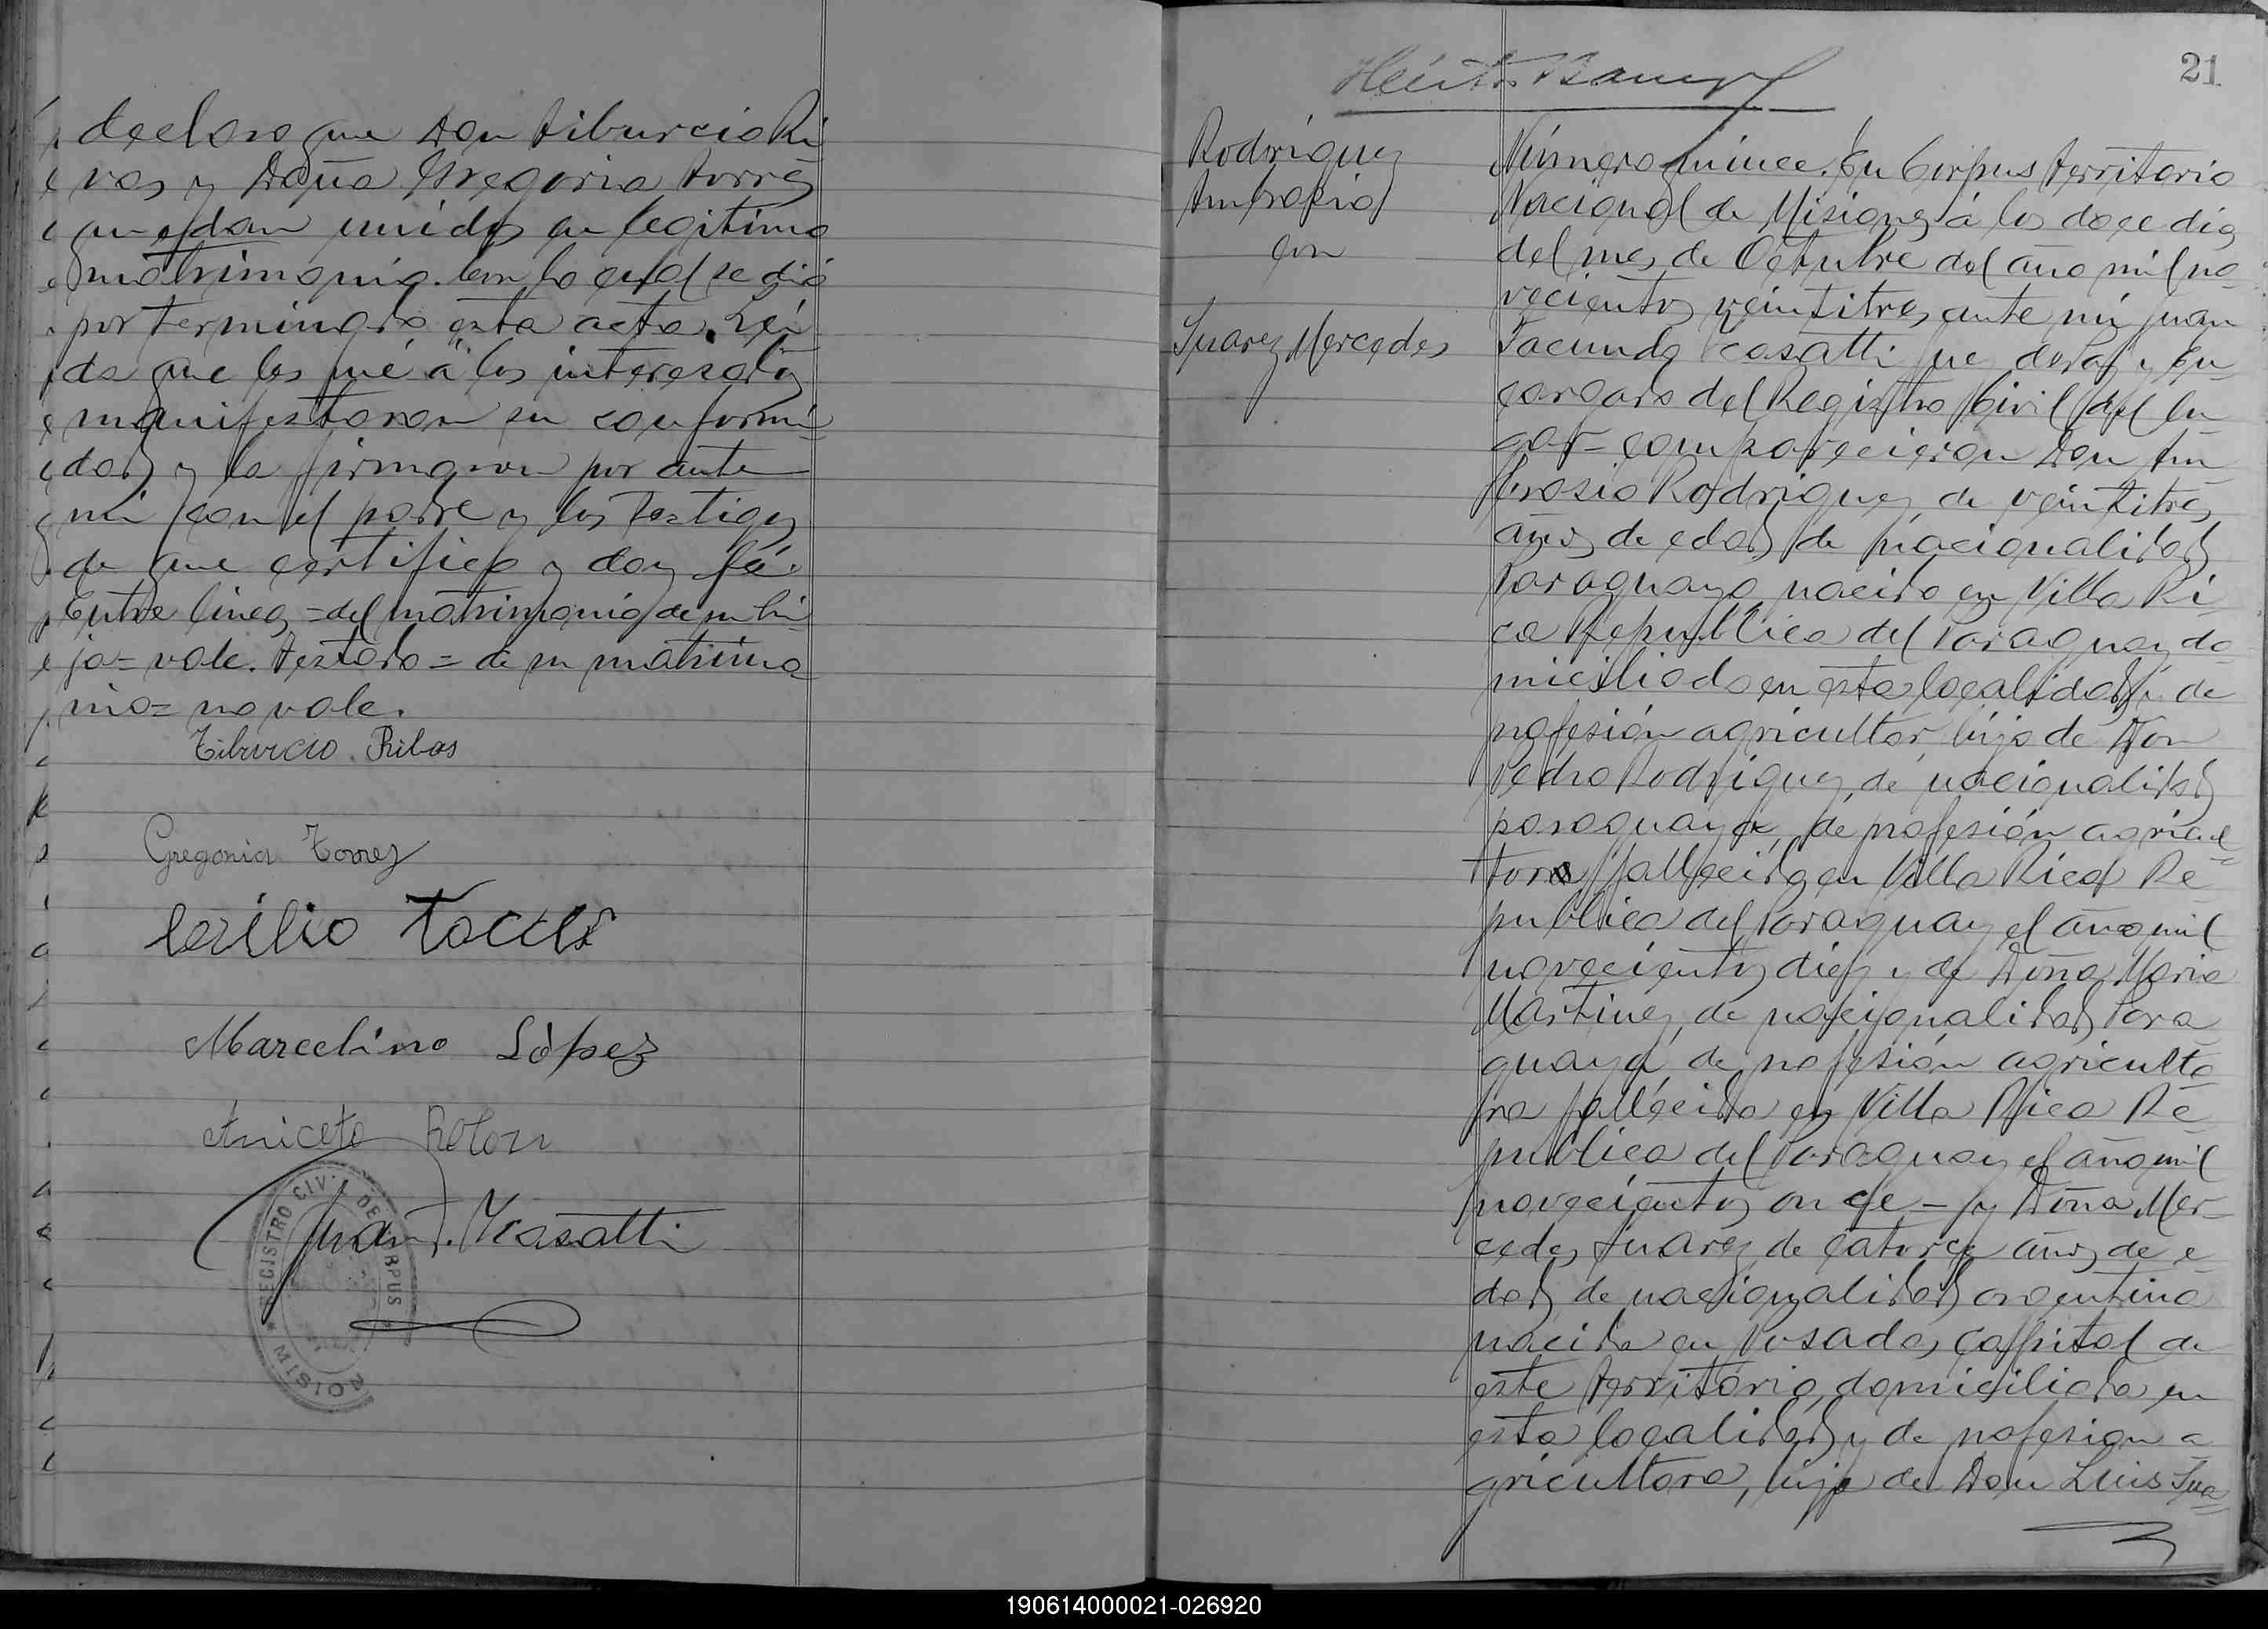 declaro que Don Tiburcio Ri
vas y Doña Gregoria Torres
quedan unidos en legitimo
matrimonio. Con lo cual se dió
por terminado esta acta. Leí
da que les fué á los interesados
manifestaron su conformi=
dad y la firmaron por ante
mi con el padre y los testigos
de que certifico y doy fé.
Entre lineas =del matrimonio de su hi
ja= vale. Testado= de su matrimo=
nio= no vale.
Tiburcio Ribas
Gregoria Torrez
Marcelino López
Aniceto Rolon
Juan F. Casatti
REGISTRO CIVIL DE CORPUS
MISIONES
21
Rodriguez
Ambrosio
con
Suarez Mercedes
Número quince. En Corpus territorio
Nacional de Misiones á los doce dias
del mes de Octubre del año mil no=
vecientos veintitres, ante mi Juan
Facundo Casatti juez de Paz y En=
cargado del Registro Civil del lu
gar= comparecieron Don Am
brosio Rodriguez de veintitres
años de edad de nacionalidad
Paraguaya nacido en Villa Ri
ca Republica del Paraguay do=
miciliado en esta localidad y de
profesión agricultor hijo de Don
Pedro Rodriguez, de nacionalidad
paraguaya, de profesión agricul=
tor fallecido en Villa Rica Re=
publica del Paraguay el año mil
novecientos diez y de Doña Maria
Martinez, de nacionalidad Para
guaya de profesión agriculto=
ra fallecida en Villa Rica Re=
publica del Paraguay el año mil
novecientos once= y Doña Mer=
cedes Suarez de catorce años de e=
dad de nacionalidad argentina
nacida en Posadas capital de
este territorio, domiciliada en
esta localidad y de profesion a=
gricultora, hija de Don Luis Sua=
190614000021-026920